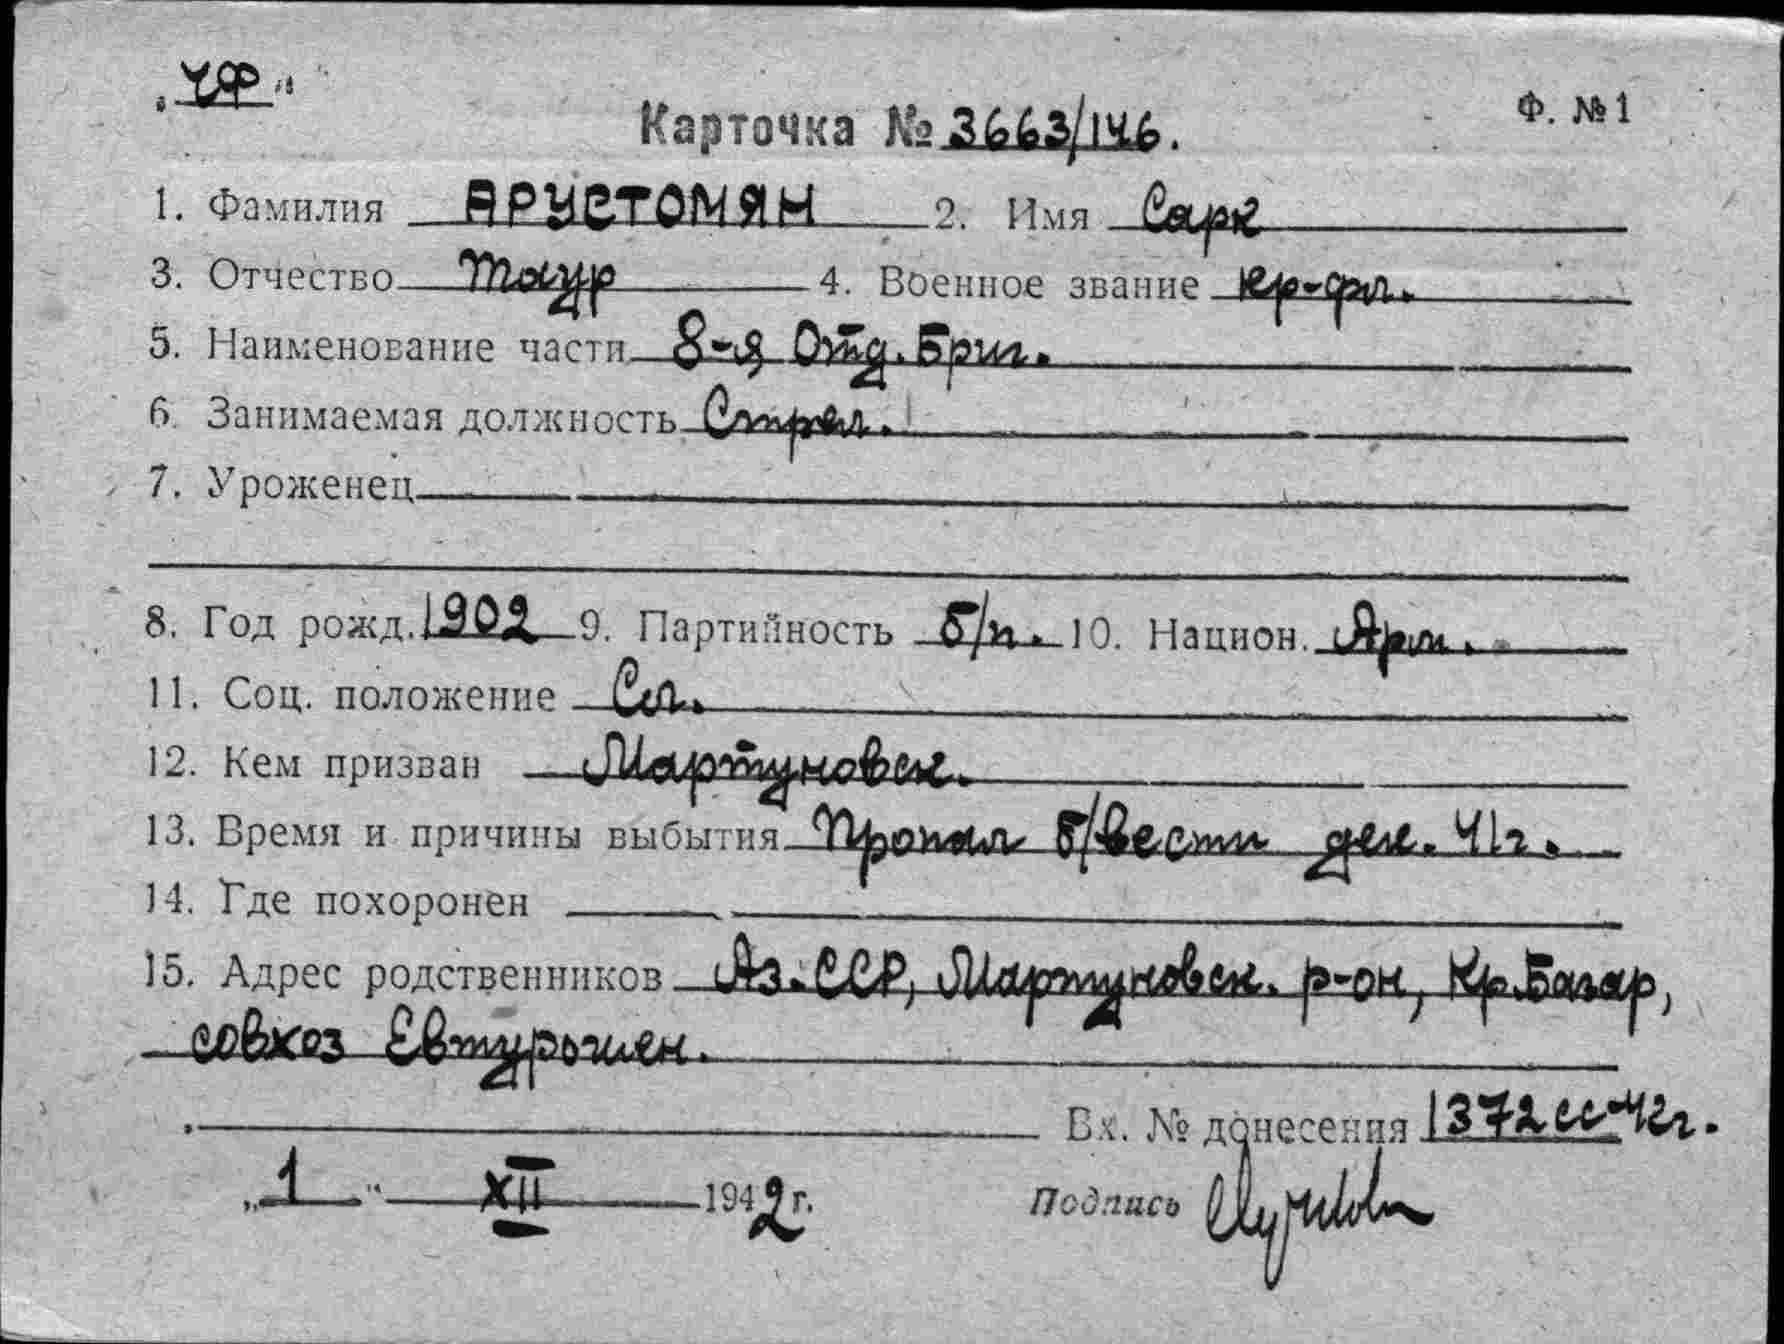 "ЧФ"
Ф. №1
Карточка № 3663/146.
1. Фамилия АРУСТОМЯН 2. Имя Сарк
3. Отчество Таур 4. Военное звание кр-фл.
5. Наименование части 8-я Отд. Бриг.
6. Занимаемая должность Стрел.
7. Уроженец
8. Год рожд. 1902 9. Партийность б/п. 10. Национ. Арм.
11. Соц. положение Сл.
12. Кем призван Мартуновск.
13. Время и причины выбытия Пропал б/вести дек. 41г.
14. Где похоронен
15. Адрес родственников Аз.ССР, Мартуновск. р-он, Кр.Базар,
совхоз Евтурошен.
Вх. № донесения 1372сс-42г.
"1" XII 1942г. Подпись